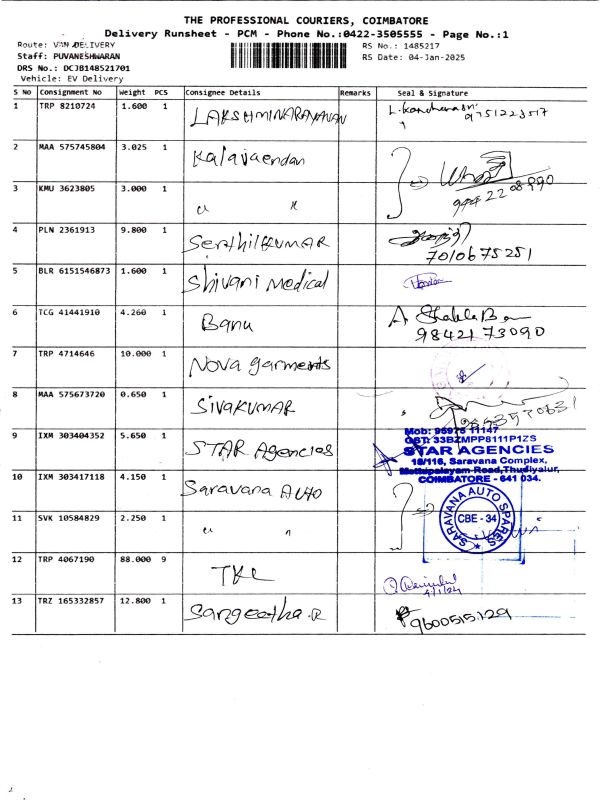 THE PROFESSIONAL COURIERS, COIMBATORE
Delivery Runsheet - PCM - Phone No.:0422-3505555 - Page No.:1
Route: VAN DELIVERY
RS No.: 1485217
Staff: PUVANESHWARAN
RS Date: 04-Jan-2025
DRS No.: DCJB148521701
Vehicle: EV Delivery
S No Consignment No Weight PCS Consignee Details Remarks Seal & Signature
1 TRP 8210724 1.600 1 LAKSHMINARAYANAN 9751223517
2 MAA 575745804 3.025 1 Kalaivaendan
3 KMU 3623805 3.000 1 " "
4 PLN 2361913 9.800 1 SenthilKUMAR
7010675251
5 BLR 6151546873 1.600 1 Shivani Medical
6 TCG 41441910 4.260 1 Banu A Shakila Banu
98421 73090
7 TRP 4714646 10.000 1 Nova garments
8 MAA 575673720 0.650 1 SIVAKUMAR
9 IXM 303404352 5.650 1 STAR Agencies
Mob: 95976 11147
GST: 33BZMPP8111P1ZS
STAR AGENCIES
18/116, Saravana Complex,
Mettupalayam Road, Thudiyalur,
COIMBATORE - 641 034.
10 IXM 303417118 4.150 1 Saravana AUTO
SARAVANA AUTO SPARES
CBE - 34
11 SVK 10584829 2.250 1 " "
12 TRP 4067190 88.000 9 TKL
13 TRZ 165332857 12.800 1 Sangeetha.R 9600515129